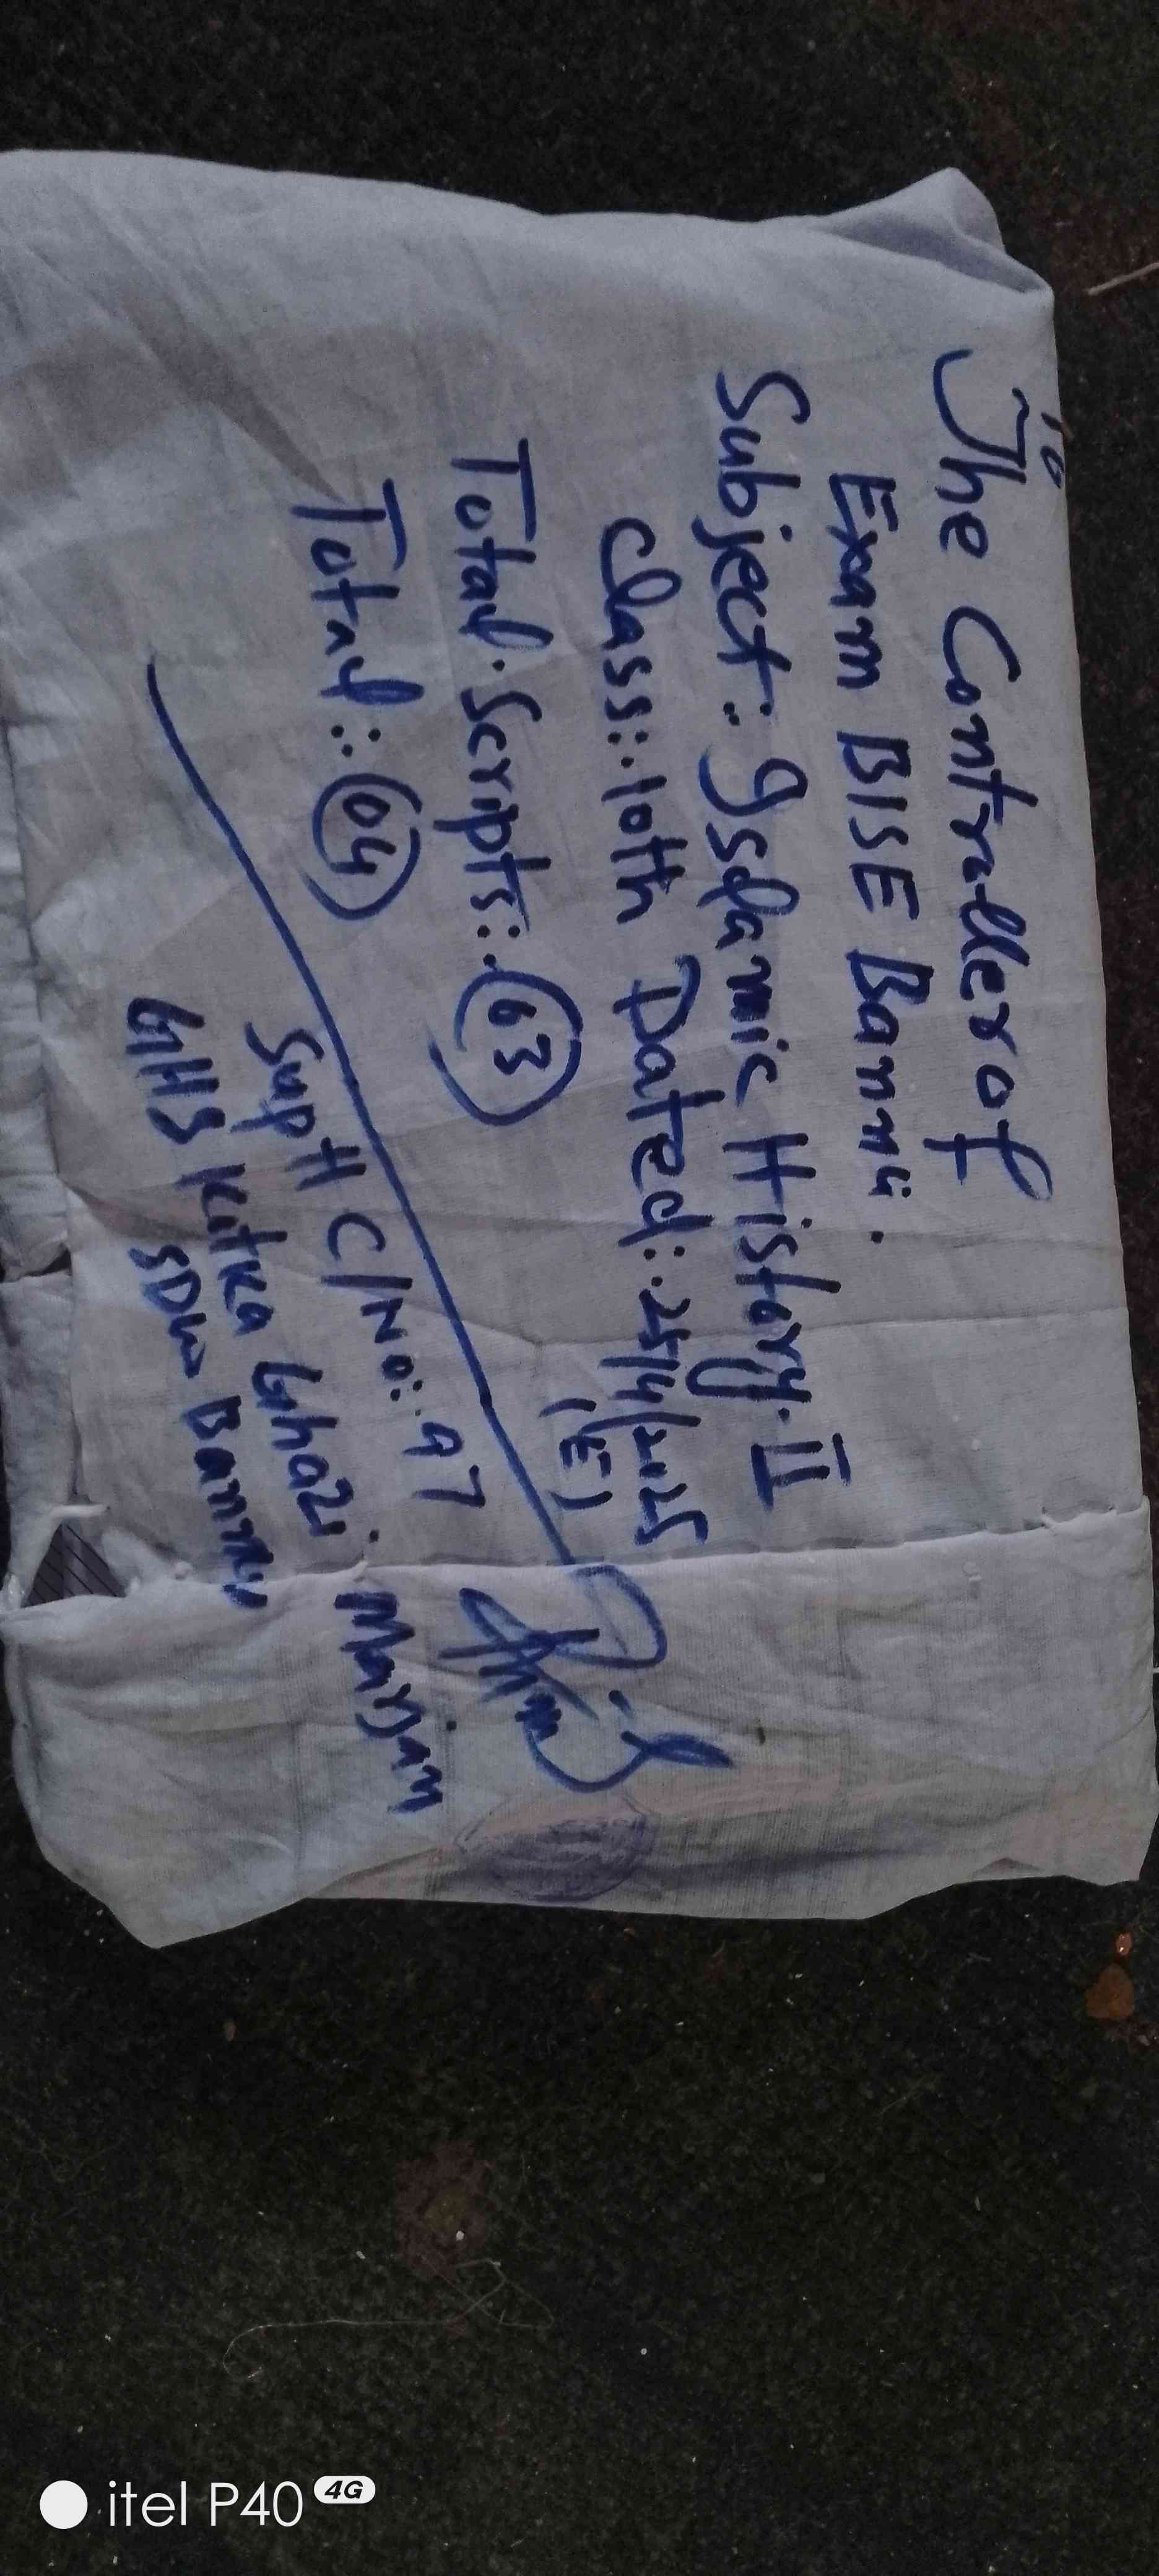 To
The Controller of
Exam BISE Bannu.
Subject: Islamic History. II
Class:. 10th Dated:. 25/4/2025
(E)
Total. Scripts:. 63
Total:. 04
Supt C/No:. 97
GHS Kitka Ghazi Marjan
SDW Bannu
itel P40 4G